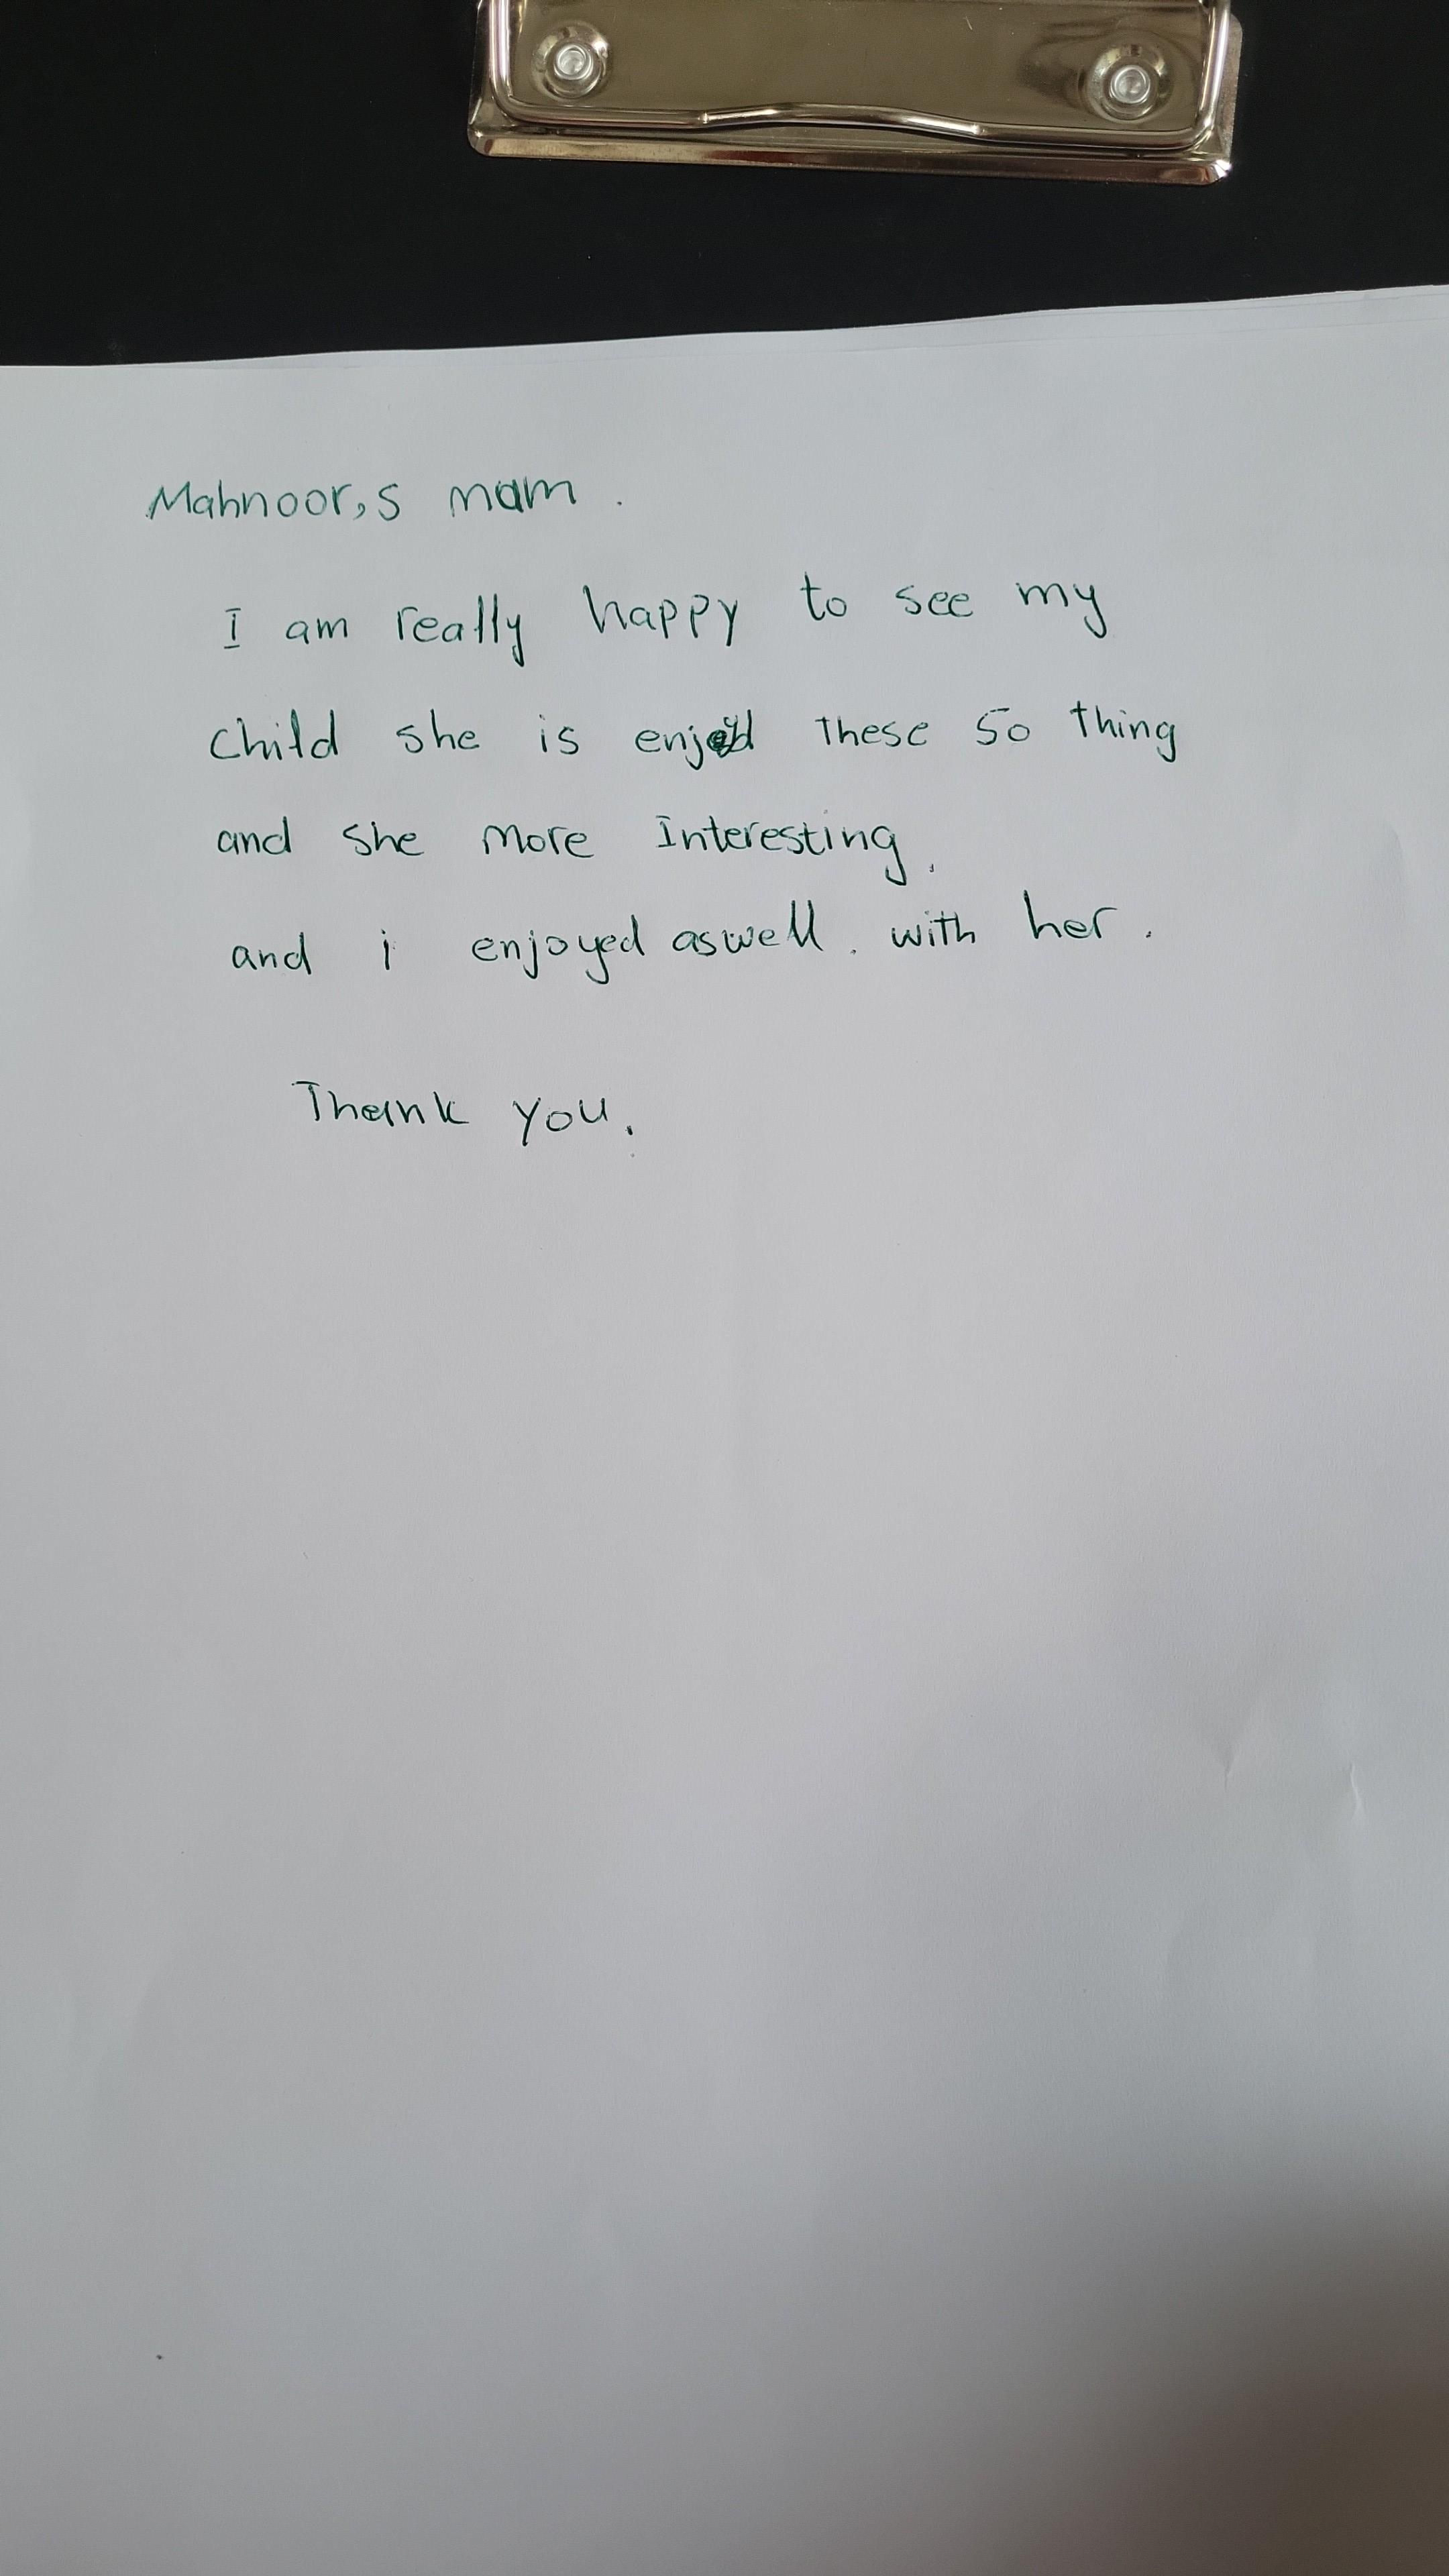 Mahnoor,s mam .
I am really happy to see my
child she is enjoyd these so thing
and she more Interesting.
and i enjoyed aswell. with her.
Thank you.